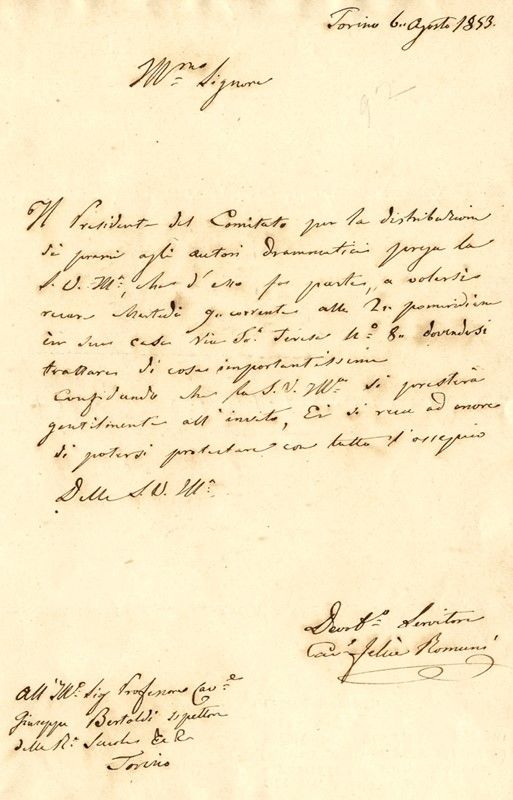 Torino 6. Agosto 1853.
Ill.mo Signore
92
Il Presidente del Comitato per la distribuzione
di premi agli autori drammatici prega la
S. V. Ill.ma, che d'esso fa parte, a volersi
recare Martedì 9 corrente alle 2 pomeridiane
in sua casa Via S.a Teresa N.o 8 dovendosi
trattare di cose importantissime
Confidando che la S. V. Ill.ma si presterà
gentilmente all'invito, Ei si reca ad onore
di potersi protestare con tutto l'ossequio
Della S. V. Ill.ma
Devot.o Servitore
Cav.e Felice Romani
All'Ill.o Sig Professore Cav.e
Giuseppe Bertoldi Ispettore
delle R.e Scuole &c &c
Torino